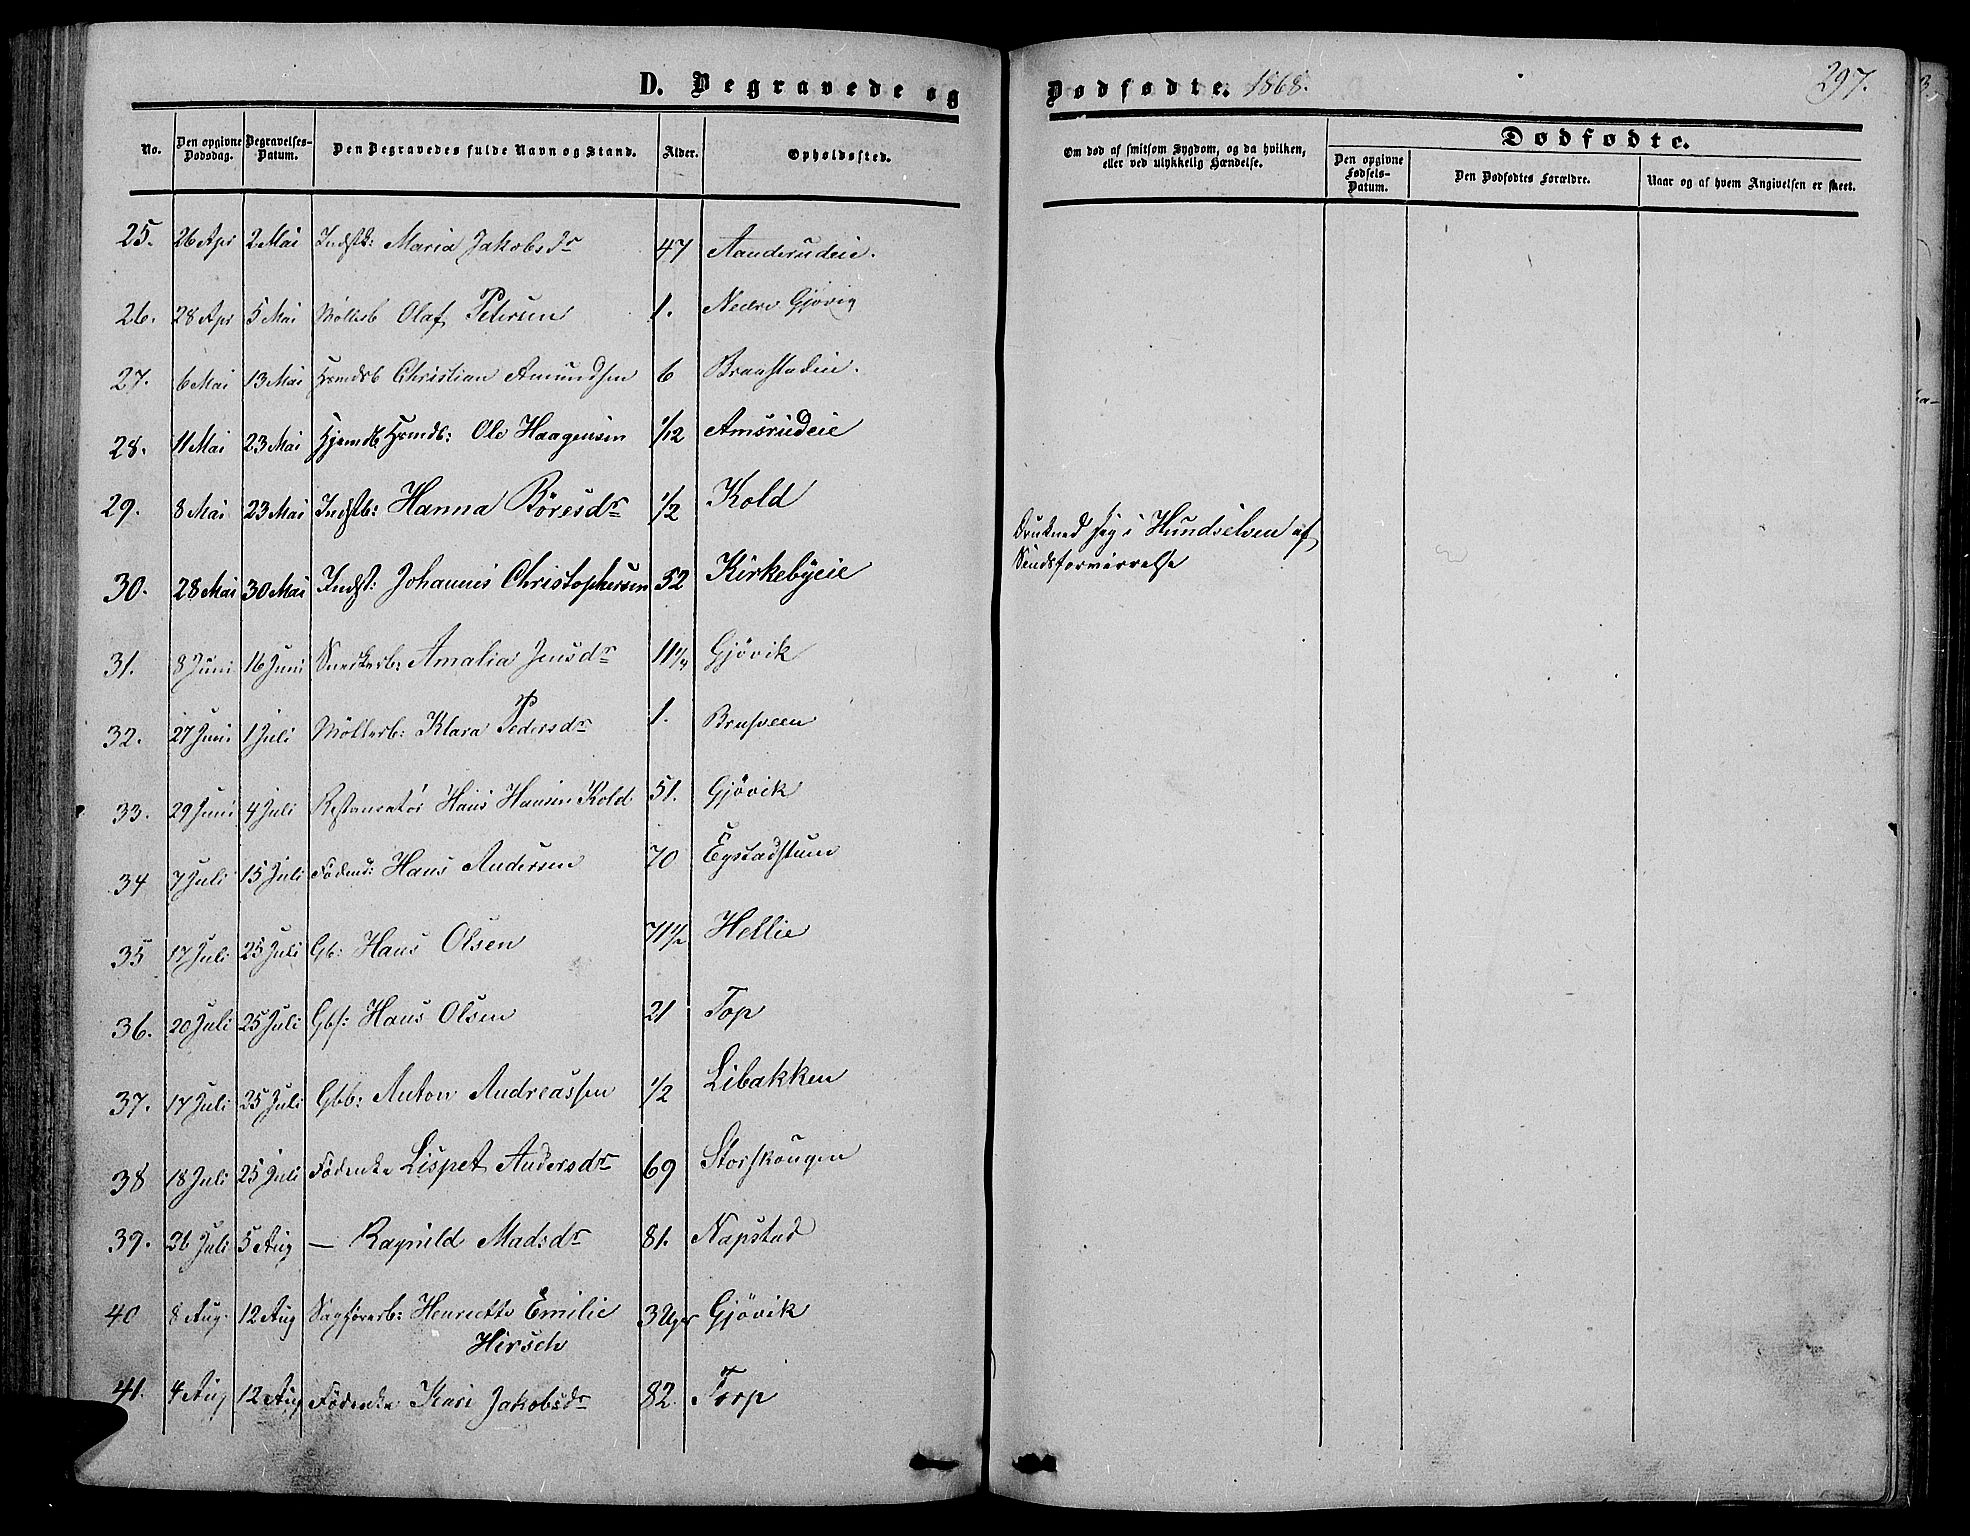 D. Begravede og Dødfødte. 1868. 297.
No. Den opgivne Dødsdag. Begravelses-Datum. Den Begravedes fulde Navn og Stand. Alder. Opholdssted. Om død af smitsom Sygdom, og da hvilken, eller ved ulykkelig Hændelse. Dødfødte. Den opgivne Fødsels-Datum. Den Dødfødtes Forældre. Naar og af hvem Angivelsen er skeet.
25. 26 Apr 2 Mai Indstk: Maria Jakobsdr 47 Aanderudeie.
26. 28 Apr 5 Mai Møllerb Olaf Petersen 1. Nedre Gjøvig
27. 6 Mai 13 Mai Hsmdsb Christian Amundsen 6 Braastadeie.
28. 11 Mai 23 Mai Hjemdb Hsmdb: Ole Haagensen 1/12 Amsrudeie
29. 8 Mai 23 Mai Indstb: Hanna Böresdr 1/2 Kold
30. 28 Mai 30 Mai Indst: Johannes Christophersen 52 Kirkebyeie Drukned sig i Hundselven af
Sindsforvirrelse
31. 8 Juni 16 Juni Snedkerb: Amalia Jensdr 11 1/4 Gjövik
32. 27 Juni 1 Juli Möllerb: Klara Pedersdr 1. Brusveen
33. 29 Juni 4 Juli Restauratör Hans Hansen Kold 51. Gjövik
34 7 Juli 15 Juli Föderd: Hans Andersen 70 Eystadstuen
35 17 Juli 25 Juli Gb: Hans Olsen 71 1/2 Hellie
36. 20 Juli 25 Juli Gbs: Hans Olsen 21 Top
37. 17 Juli 25 Juli Gbb: Anton Andreassen 1/2 Libakken
38 18 Juli 25 Juli Föderke Lispet Andersdr 69 Storskougen
39. 31 Juli 5 Aug — Ragnild Madsdr 81. Napstad
40 8 Aug. 12 Aug Sagförerb: Henriette Emilie 3 Uger Gjövik
Hirsch
41. 4 Aug 12 Aug Föderke Kari Jakobsdr 82. Torp